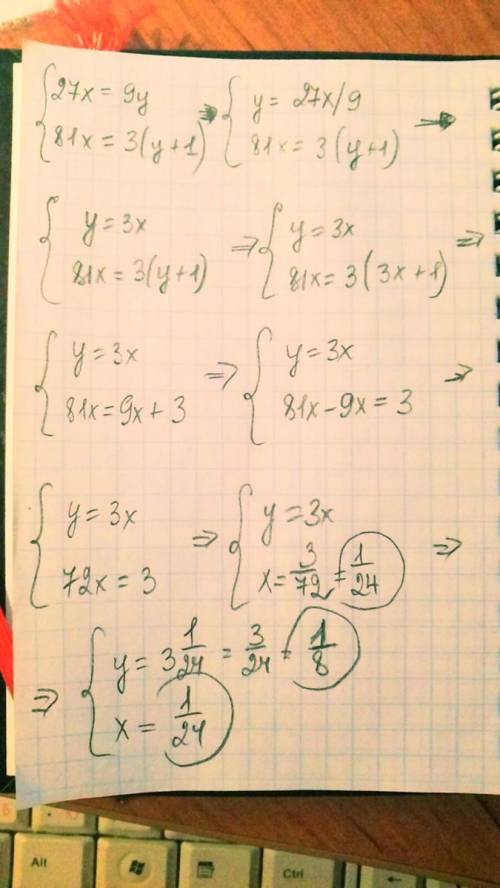 27x = 9y
81x = 3(y+1)
y = 27x/9
81x = 3(y+1)
y = 3x
81x = 3(y+1)
⇒
y = 3x
81x = 3(3x+1)
⇒
y = 3x
81x = 9x + 3
⇒
y = 3x
81x - 9x = 3
y = 3x
72x = 3
⇒
y = 3x
x = 3/72 = 1/24
⇒
⇒
y = 3 1/24 = 3/24 = 1/8
x = 1/24
Alt
Ctrl